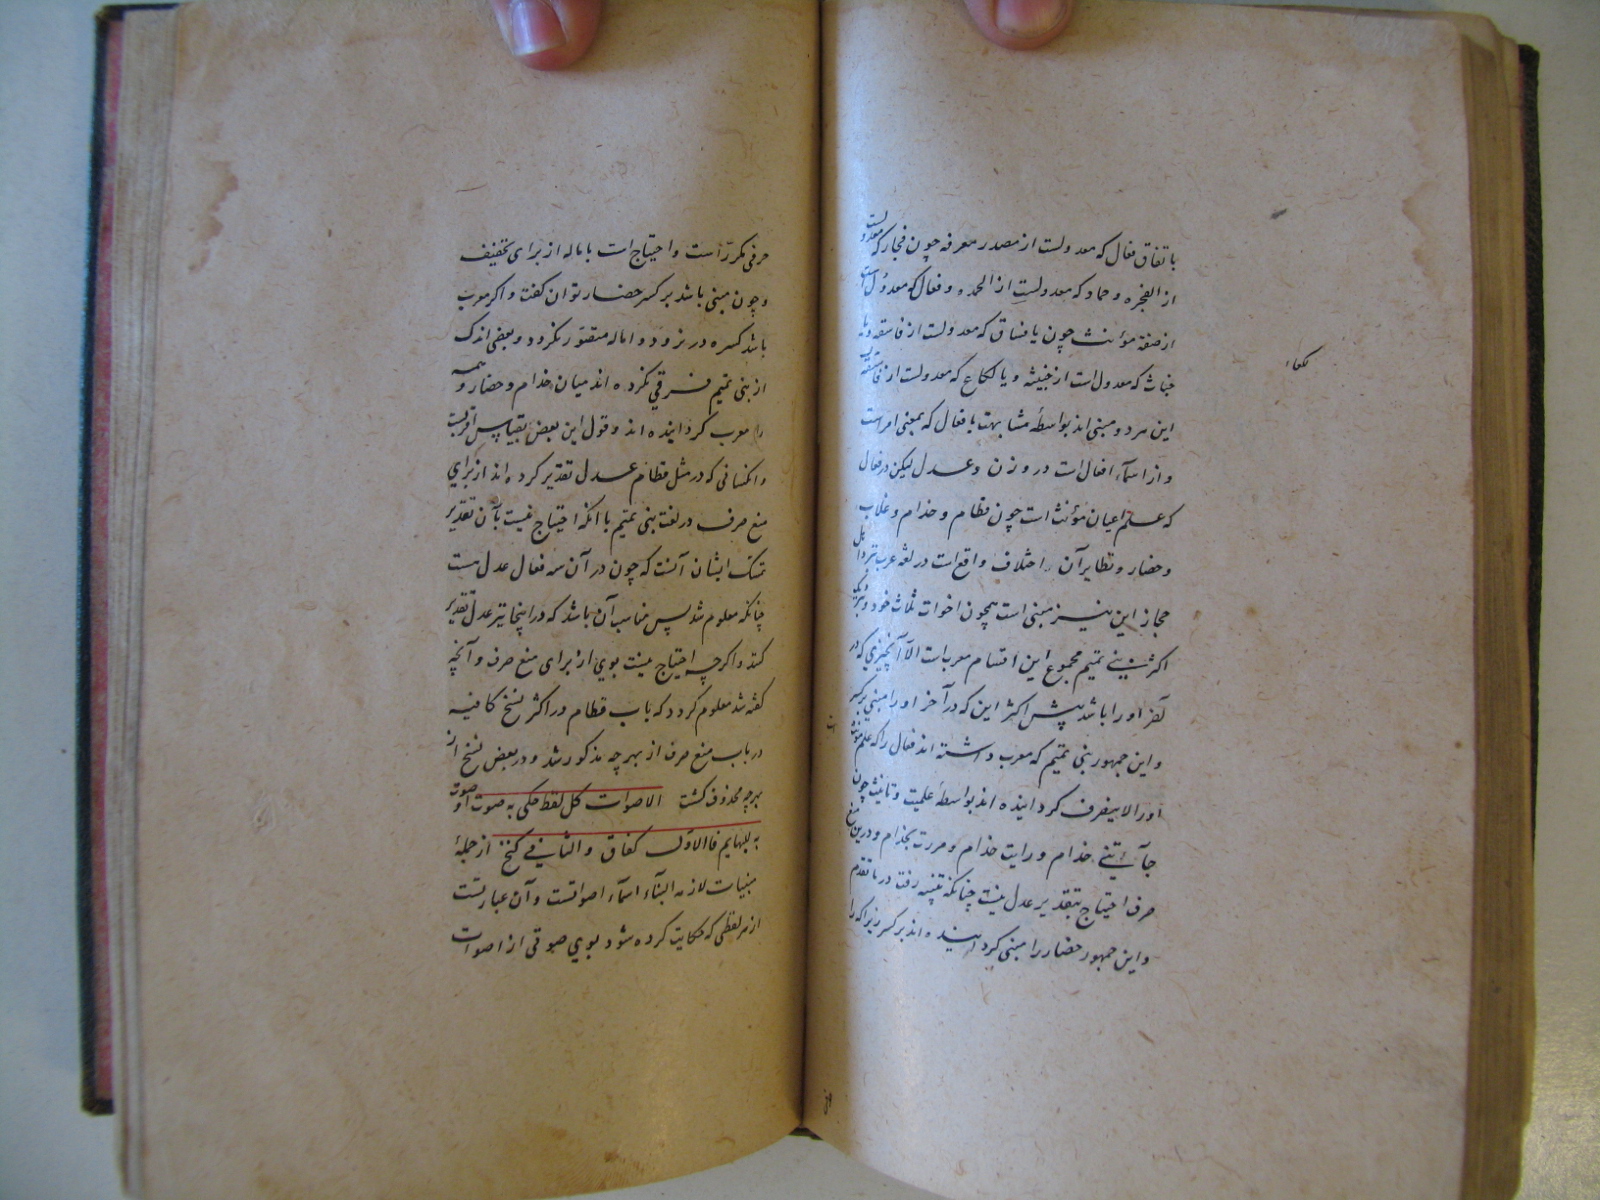 باتفاق فعال که معدولست از مصدر معرفه چون فجار که معدولست
از الفجره و حماد که معدولست از الحمده و فعال که معدول است
از صفة مؤنث چون یا فساق که معدولست از فاسقه و یا
خباث که معدول است از خبیثه و یا لکاع که معدولست از
لکعاء
این هر دو مبنی اند بواسطهٔ مشابهت با فعال که بمعنی امر است
و از اسماء افعال است در وزن و عدل لیکن در فعال
که علم اعیان مؤنث است چون قطام و حذام و غلاب
و حضار و نظایر آن اختلاف واقع است در لغه عرب نزد اهل
حجاز این نیز مبنی است همچون اخوات ثلاث خود و نزدیک
اکثر بنی تمیم مجموع این اقسام معرب است الا آنچیزی که در
آخر او را باشد پس اکثر این که در آخر او را مبنی بر کسر
و این جمهور بنی تمیم که معرب داشته اند فعال را که علم مؤنث
او را لا ینصرف گردانیده اند بواسطهٔ علمیت و تانیث چون
جآءتنی حذام و رایت حذام و مررت بحذام و درین منع
صرف احتیاج بتقدیر عدل نیست چنانکه تنبیه رفت در ما تقدم
و این جمهور حضار را مبنی گردانیده اند بر کسر زیرا که را
حرفی مکرر است و احتیاج است باماله از برای تخفیف
و چون مبنی باشد بر کسر حضار توان گفت و اگر معرب
باشد کسره در نرود و اماله متصور نگردد و بعضی اندک
از بنی تمیم فرقی نکرده اند میان حذام و حضار و همه
را معرب گردانیده اند و قول این بعض بقیاس اقربست
و انکسانی که در مثل قطام عدل تقدیر کرده اند از برای
منع صرف در لغت بنی تمیم با انکه احتیاج نیست بآن تقدیر
تمسک ایشان آنست که چون در آن سه فعال عدل هست
چنانکه معلوم شد پس مناسب آن باشد که در اینجا نیز عدل تقدیر
کنند و اگر چه احتیاج نیست بوی از برای منع صرف و آنچه
گفته شد معلوم گردد که باب قطام در اکثر نسخ کافیه
در باب منع صرف از بهر چه مذکور شد و در بعض نسخ از
بهر چه محذوف گشت الاصوات کل لفظ حکی به صوت او صوت
به للبهایم فالاول کغاق و الثانی کنخ از جملهٔ
مبنیات لازمه البنآء اسمآء اصواتست و آن عبارتست
از هر لفظی که حکایت کرده شود بوی صوتی از اصوات